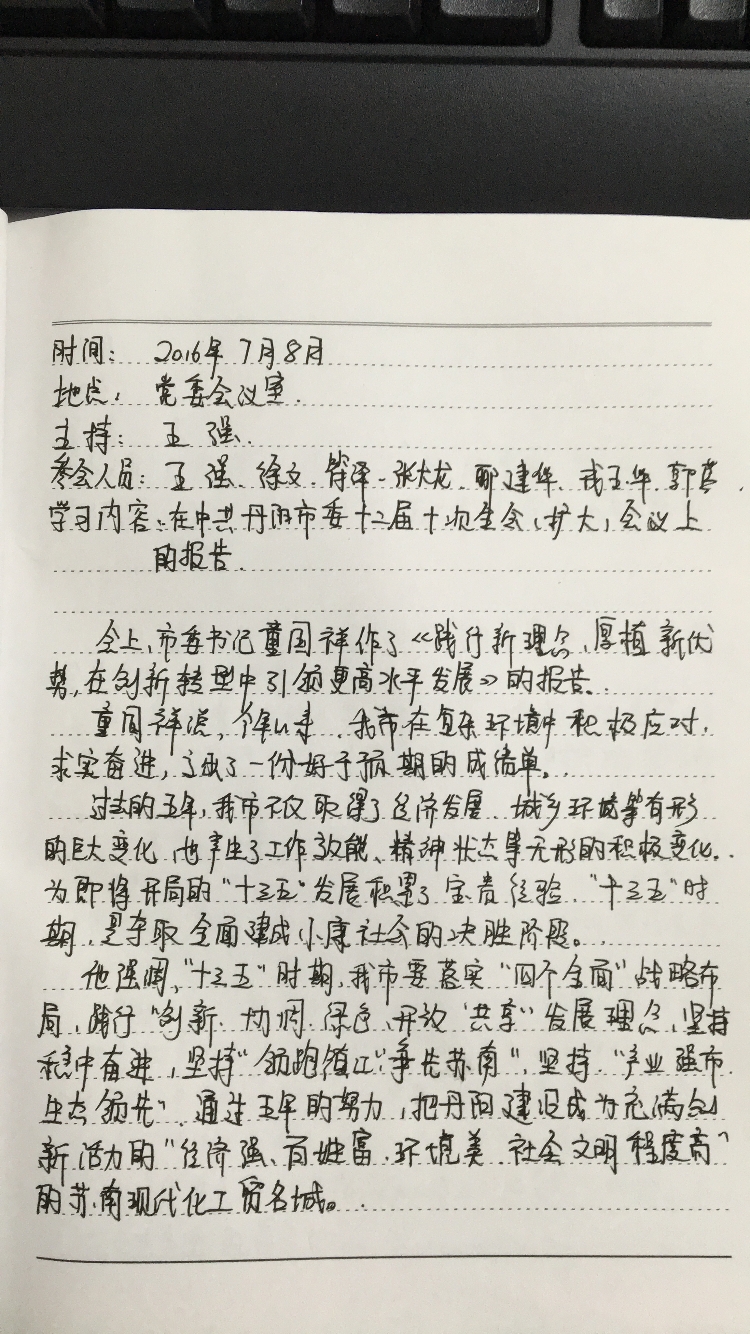 时间： 2016年7月8月
地点： 党委会议室.
主持： 王 强.
参会人员：王强、徐文、 张大龙、 建华、 玉华、郭
学习内容：在中共丹阳市委十二届十次全会（扩大）会议上
的报告.
会上，市委书记童国祥作了《践行新理念、厚植新优
势，在创新转型中引领更高水平发展》的报告.
童国祥说，个年以来，我市在复杂环境中积极应对，
求实奋进，交出了一份好于预期的成绩单。
过去的五年，我市不仅取得了经济发展、城乡环境等有形
的巨大变化，也产生了工作效能、精神状态等无形的积极变化.
为即将开局的“十三五”发展积累了宝贵经验，“十三五”时
期，是夺取全面建成小康社会的决胜阶段。
他强调，“十三五”时期，我市要落实“四个全面”战略布
局，践行“创新、协调、绿色、开放、共享”发展理念，坚持
稳中奋进，坚持“领跑镇江、争先苏南”，坚持“产业强市、
生态领先”，通过五年的努力，把丹阳建设成为充满创
新活力的“经济强、百姓富、环境美、社会文明程度高”
的苏南现代化工贸名城。